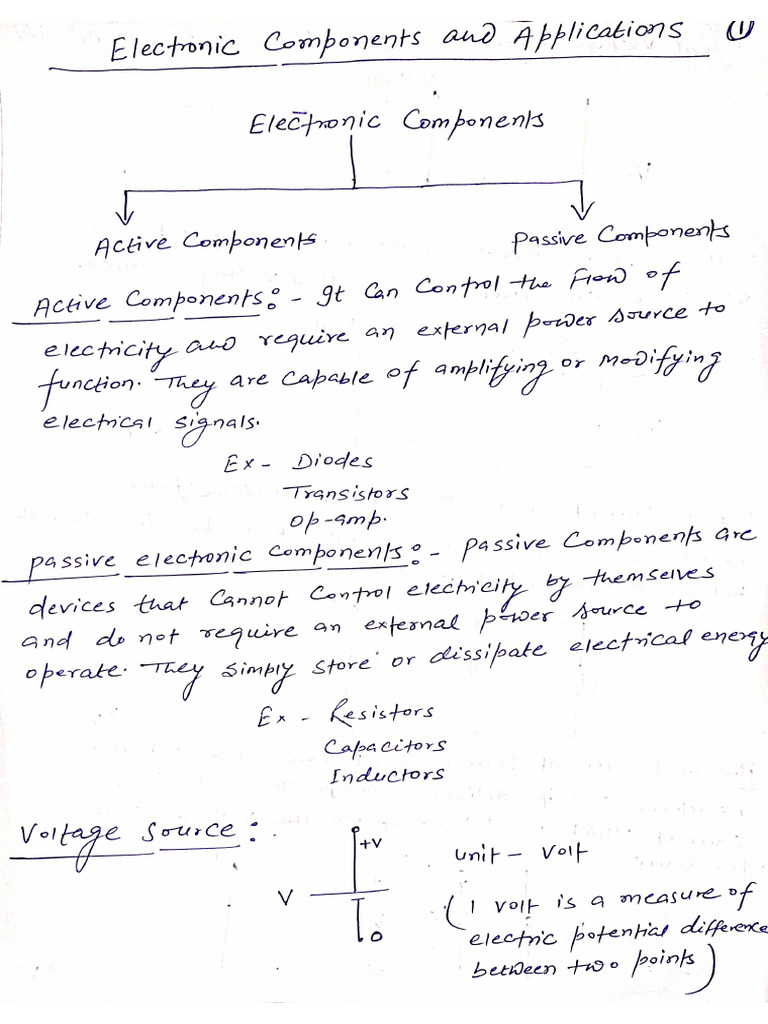 Electronic Components and Applications (1)
Electronic Components
Active Components Passive Components
Active Components:- It Can Control the Flow of
electricity and require an external power source to
function. They are capable of amplifying or modifying
electrical signals.
Ex- Diodes
Transistors
Op-amp.
passive electronic components:- Passive Components are
devices that Cannot Control electricity by themselves
and do not require an external power source to
operate. They simply store or dissipate electrical energy
Ex - Resistors
Capacitors
Inductors
Voltage Source:
+V
unit - volt
V
(1 volt is a measure of
electric potential difference
between two points)
0